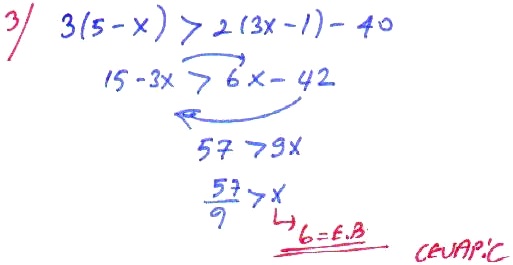 3/ 3(5-x) > 2(3x-1)-40
15-3x > 6x-42
57 > 9x
57/9 > x
6=E.B
CEVAP:C